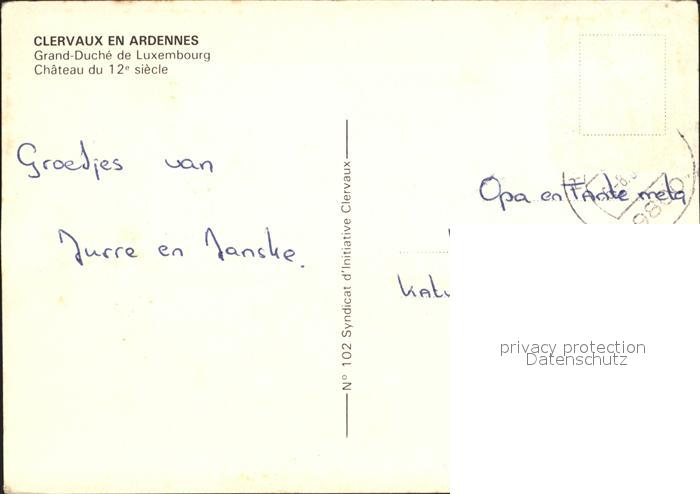 CLERVAUX EN ARDENNES
Grand-Duché de Luxembourg
Château du 12e siècle
Groetjes van
Jurre en Janske.
Nº 102 Syndicat d'Initiative Clervaux
Opa en Tante meta
privacy protection
Datenschutz